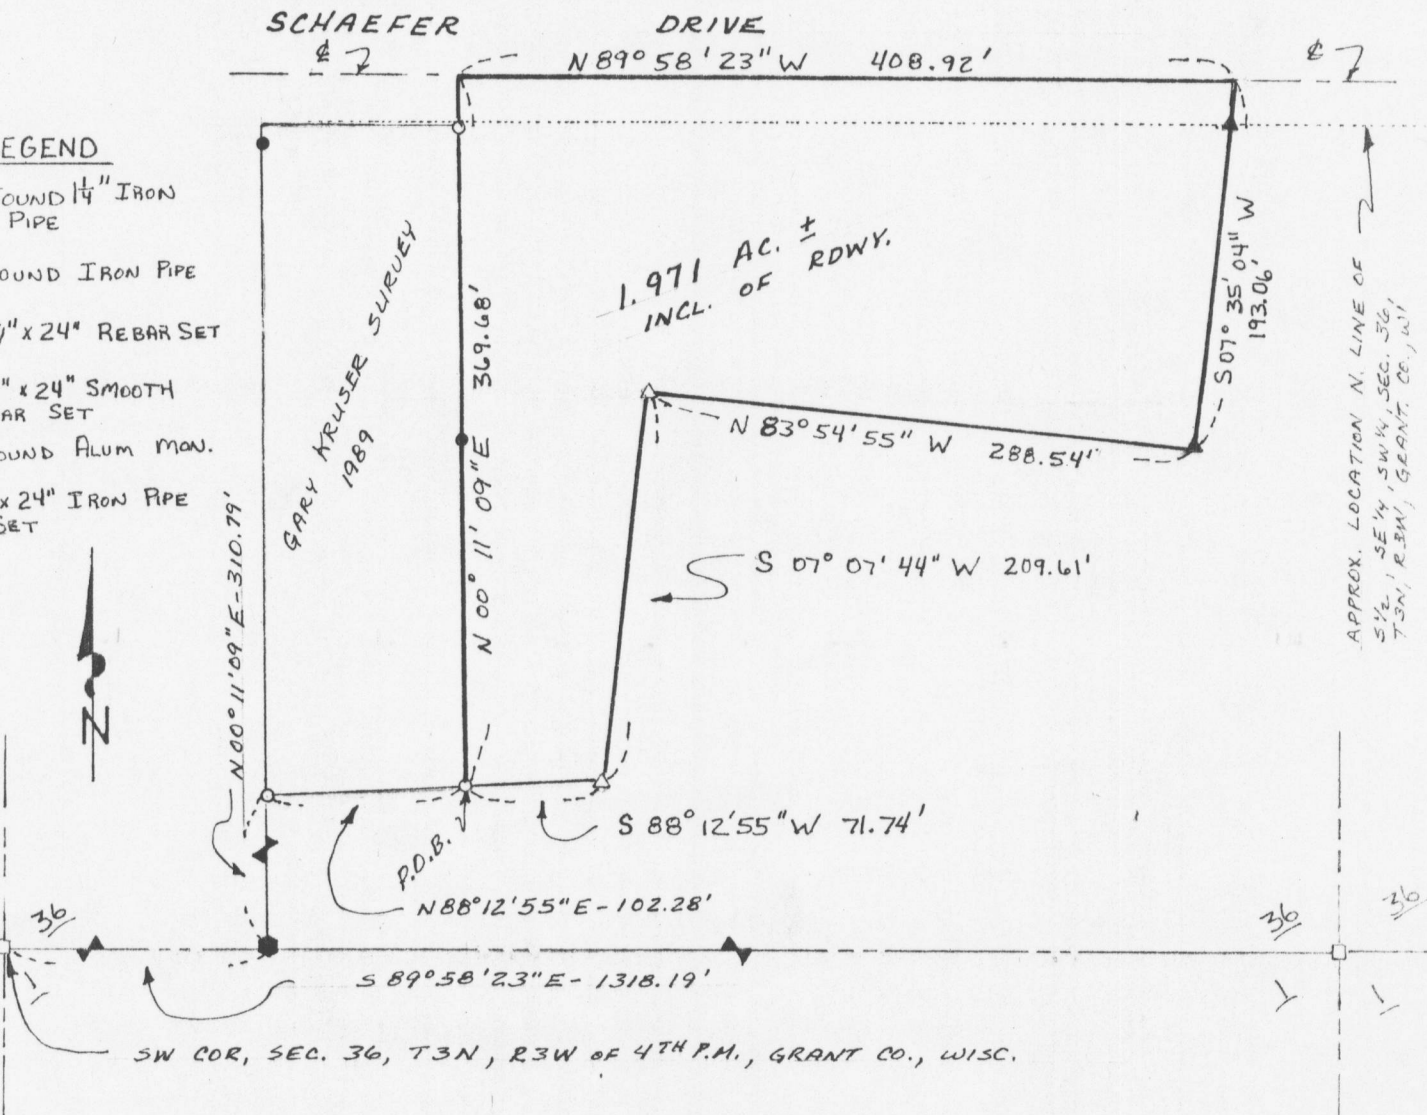 SCHAEFER DRIVE
℄
N 89° 58' 23" W 408.92'
℄
EGEND
OUND 1¼" IRON
PIPE
OUND IRON PIPE
" x 24" REBAR SET
" x 24" SMOOTH
AR SET
OUND ALUM MON.
x 24" IRON PIPE
SET
N
GARY KRUSER SURVEY
1989
N 00° 11' 09" E 369.68'
1.971 AC. ±
INCL. OF RDWY.
S 07° 35' 04" W
193.06'
N 83° 54' 55" W 288.54'
S 07° 07' 44" W 209.61'
APPROX. LOCATION N. LINE OF
S ½, SE ¼, SW ¼, SEC. 36,
T3N, R3W, GRANT. CO., WI
N 00° 11' 09" E - 310.79'
S 88° 12' 55" W 71.74'
P.O.B.
N 88° 12' 55" E - 102.28'
36
36
36
S 89° 58' 23" E - 1318.19'
1
1
1
SW COR, SEC. 36, T3N, R3W OF 4TH P.M., GRANT CO., WISC.